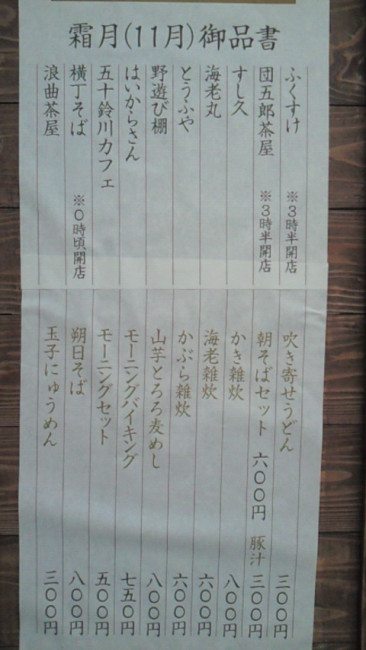 霜月(11月)御品書
ふくすけ ※3時半開店 吹き寄せうどん 三〇〇円
団五郎茶屋 ※3時半開店 朝そばセット 六〇〇円 豚汁 三〇〇円
すし久 かき雑炊 八〇〇円
海老丸 海老雑炊 六〇〇円
とうふや かぶら雑炊 六〇〇円
野遊び棚 山芋とろろ麦めし 八〇〇円
はいからさん モーニングバイキング 七五〇円
五十鈴川カフェ モーニングセット 五〇〇円
横丁そば ※0時頃開店 朔日そば 八〇〇円
浪曲茶屋 玉子にゅうめん 三〇〇円